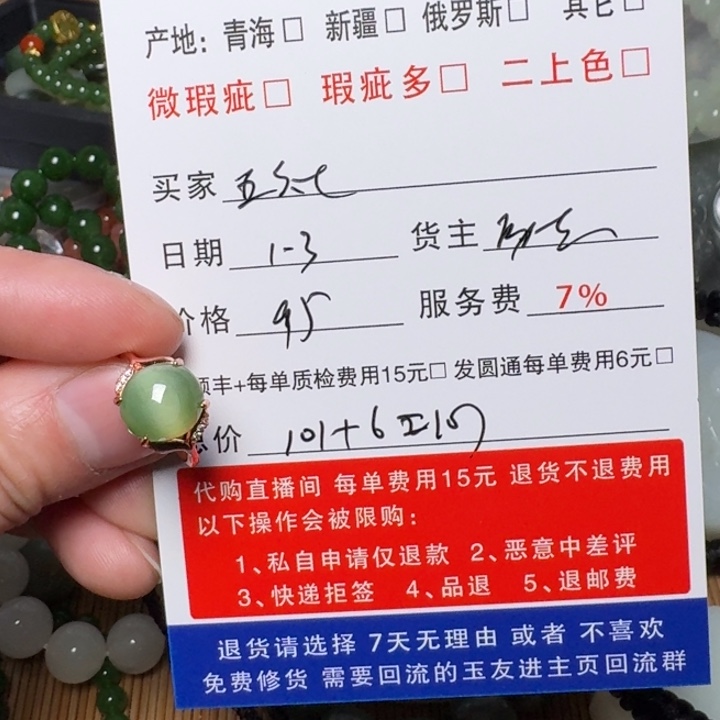 产地：青海□ 新疆□ 俄罗斯□ 其它□
微瑕疵□ 瑕疵多□ 二上色□
买家
日期 1-3 货主
价格 95 服务费 7%
顺丰+每单质检费用15元□ 发圆通每单费用6元□
总价 101+6=107
代购直播间 每单费用15元 退货不退费用
以下操作会被限购：
1、私自申请仅退款 2、恶意中差评
3、快递拒签 4、品退 5、退邮费
退货请选择 7天无理由 或者 不喜欢
免费修货 需要回流的玉友进主页回流群